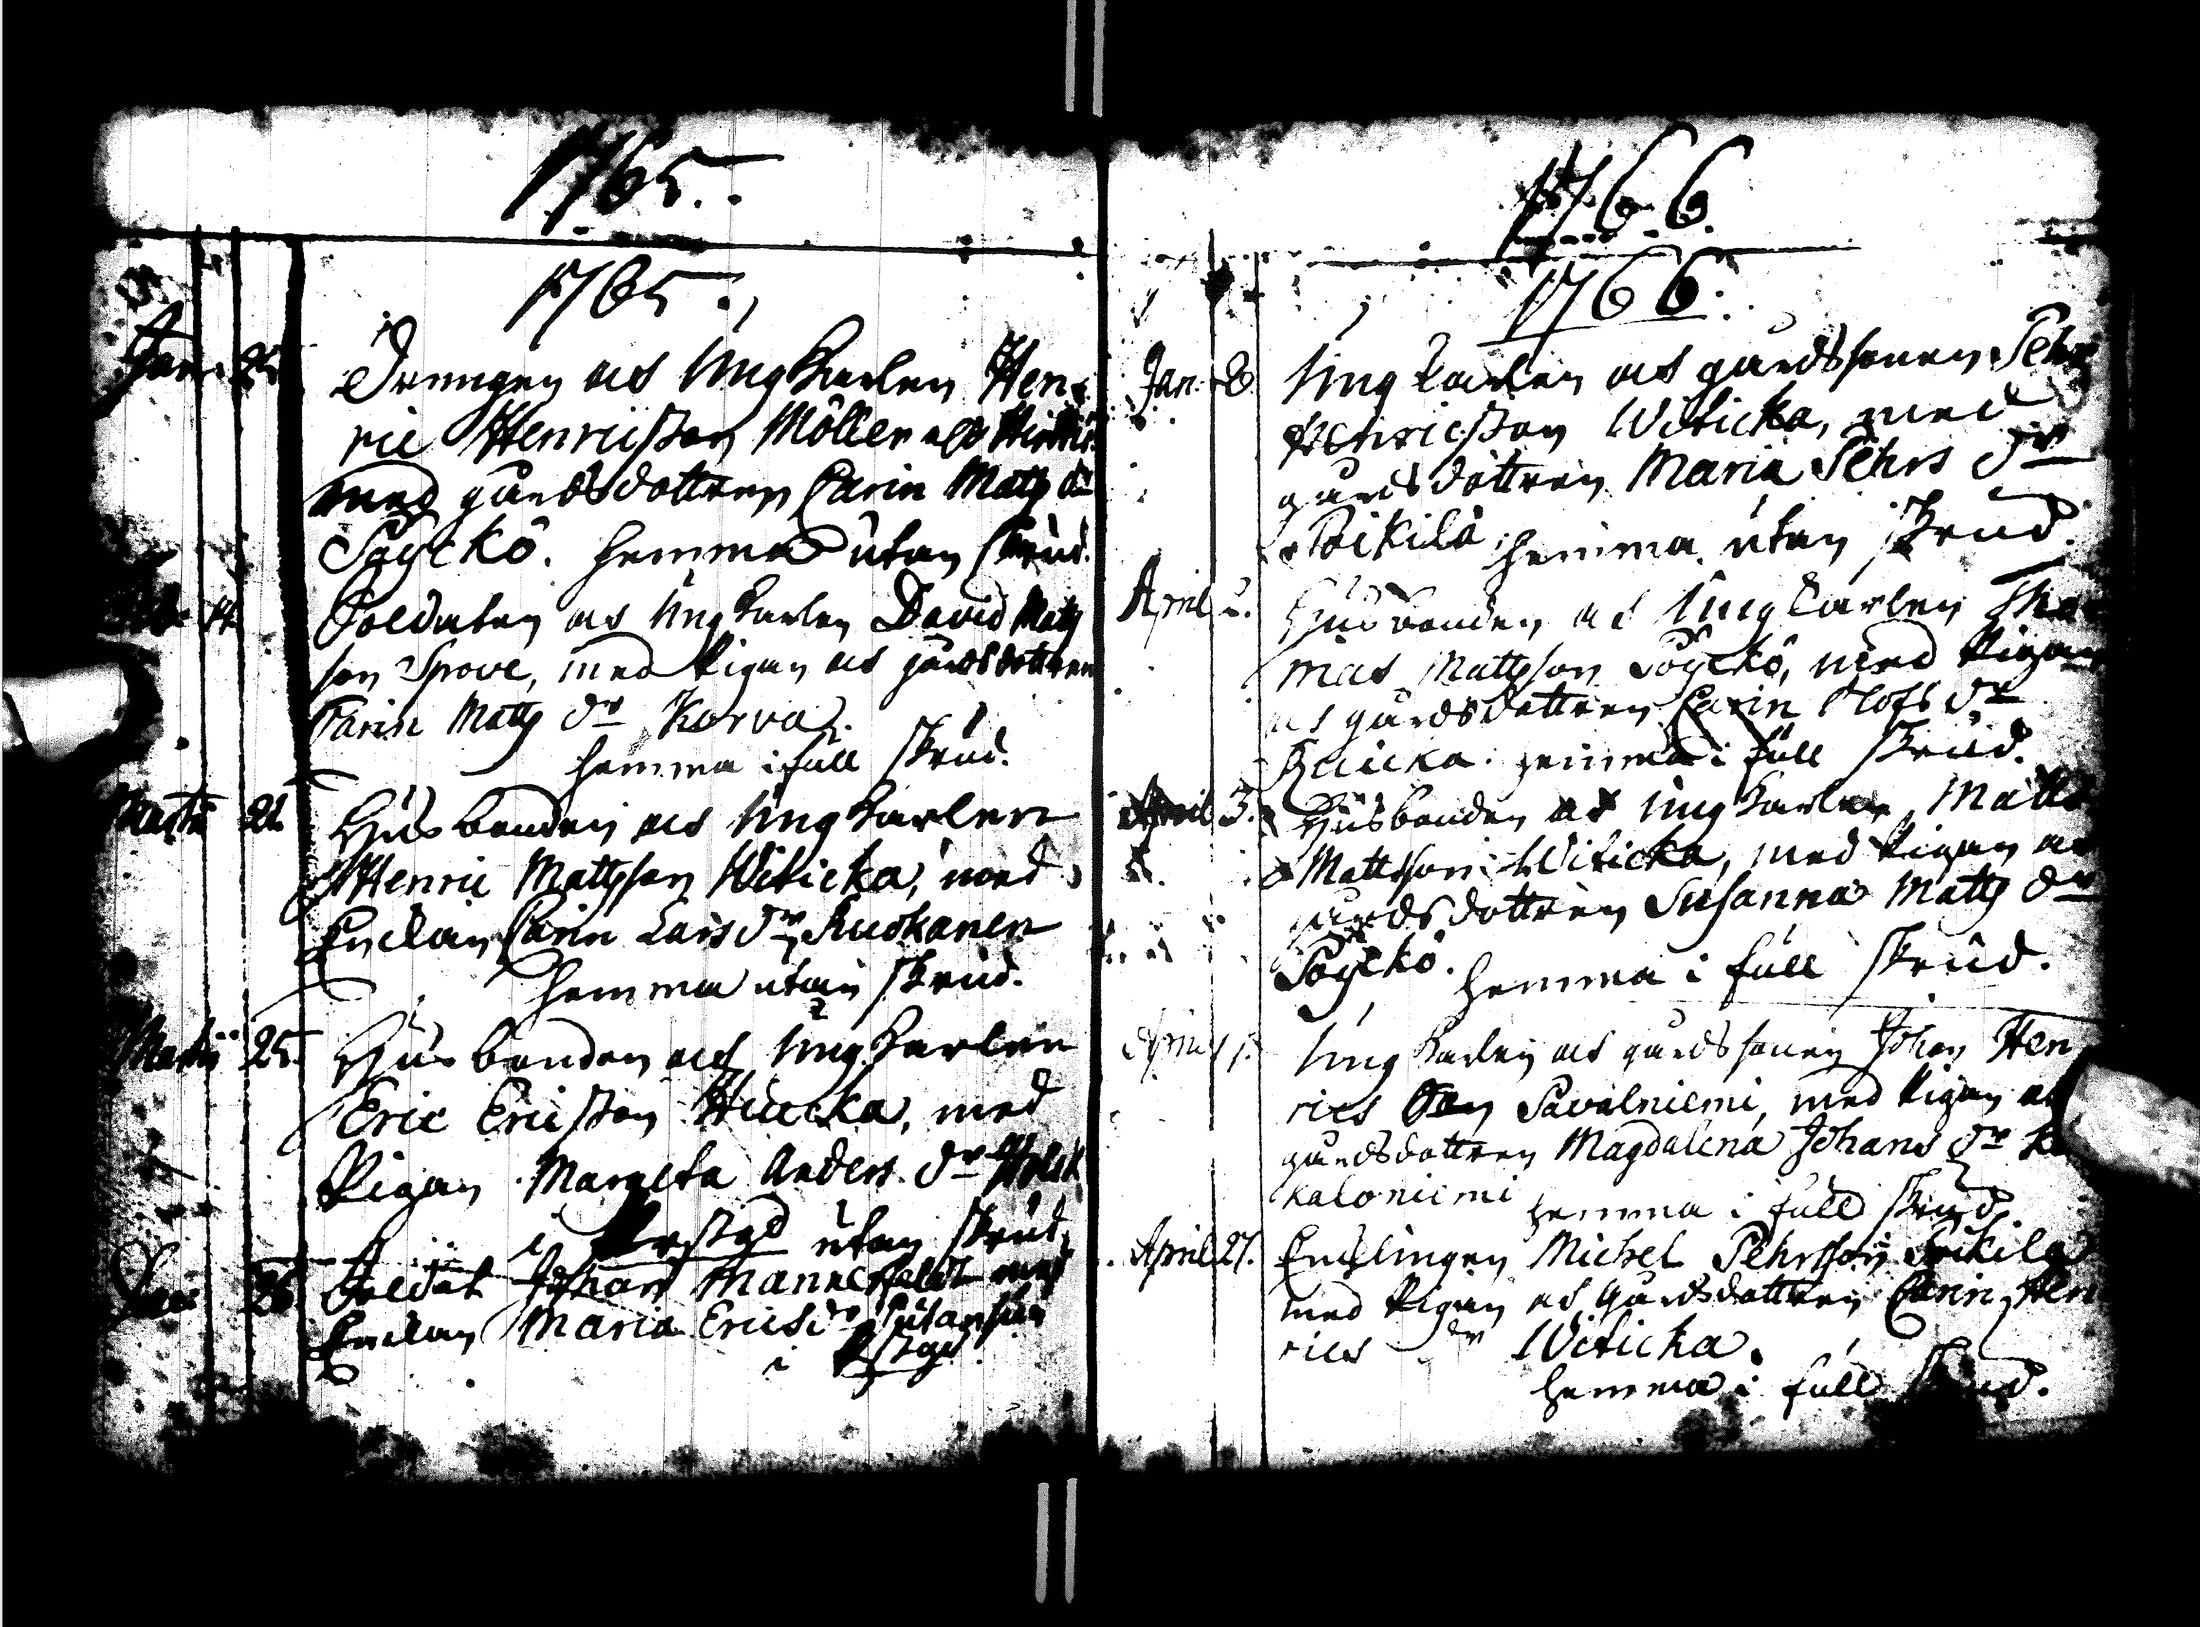 1765.
1765.
Jan. 25 Drengen och Ungkarlen Hen-
ric Henricsson Möller
med gårdsdottren Carin Matts dr
Pöyckö. hemma utan skrud.
Soldaten och Ungkarlen David Matts
son Sprove, med Pigan och gårdsdottren
Carin Matts dr Korva.
hemma i full skrud.
Martii 21. Husbonden och Ungkarlen
Henric Mattsson Witicka, med
Enckan Carin Lars dr Kuokanen
hemma utan skrud.
Martii 25. Husbonden och Ungkarlen
Eric Ericsson Hucka, med
Pigan Margeta Anders dr
i utan skrud.
26 Soldat Johan med
Enckan Maria Erics dr
i
1766.
1766.
Jan. 28. Ungkarlen och gårdssonen Pehr
Henricsson Witicka, med
gårdsdottren Maria Pehrs dr
Poikila hemma utan skrud.
April 2. Husbonden och Ungkarlen Tho
mas Mattsson Pöyckö, med Pigan
och gårdsdottren Carin Olofs dr
hemma i full skrud.
April 3. Husbonden och Ungkarlen Matts
Mattsson Witicka, med Pigan och
gårdsdottren Susanna Matts dr
Pöyckö. hemma i full skrud.
April Ungkarlen och gårdssonen Johan Hen
rics Son Savolniemi, med Pigan och
gårdsdottren Magdalena Johans dr
kaloniemi hemma i full skrud
April 27. Encklingen Michel Pehrsson Poikila
med Pigan och Gårdsdottren Carin Hen
rics dr Witicka.
hemma i full skrud.